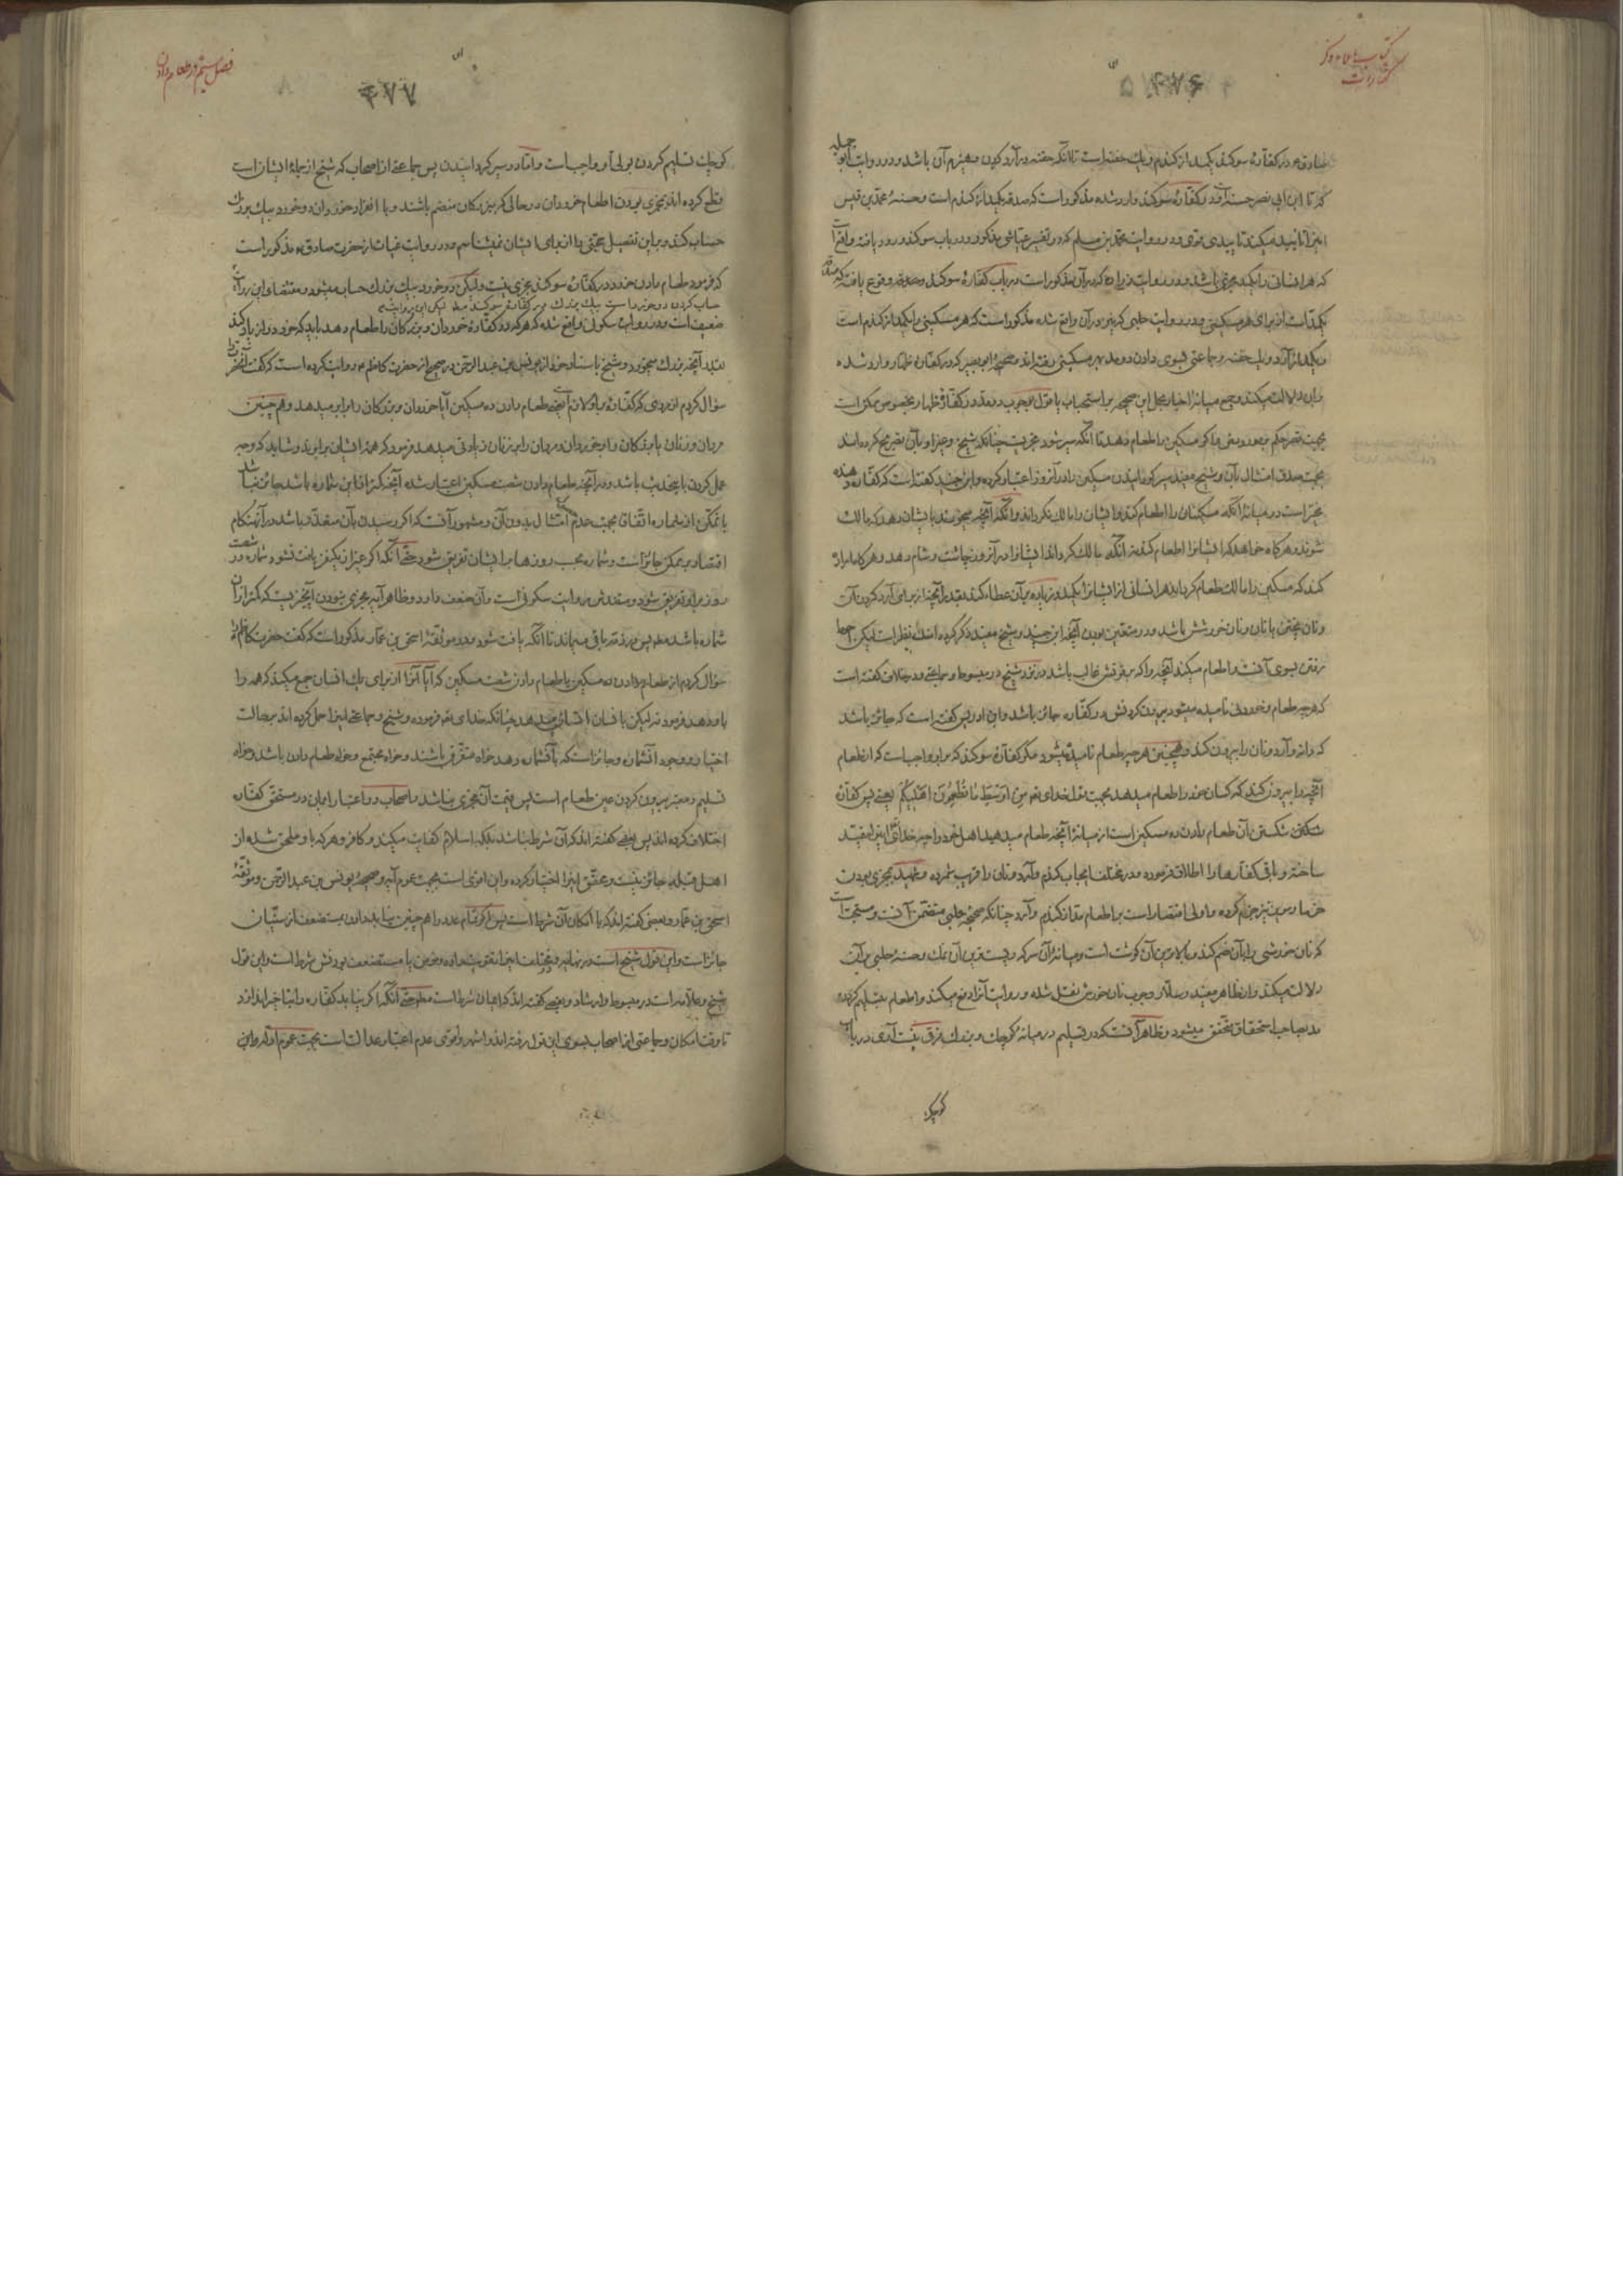 کتاب
کفارات
۴۷۶
صادق ع در کفارهٔ سوکند یکمد از کندم و یك حفنه است تا آنکه حفنه در آرد کردن و هیزم آن باشد و در روایت ابو جمیله
که تا ابن ابی نصر در کفارهٔ سوکند وارد شده مذکور است که صدقه یکمد از کندم است و حسنهٔ محمد بن قیس
اینرا تایید میکند تاییدی قوی و در روایت محمد بن مسلم که در تفسیر عیاشی مذکور و در باب سوکند ورود یافته واقع است
که هر انسانی را یکمد مجزی باشد و در روایت زراره که در آن مذکور است در باب کفارهٔ سوکند وقوع یافته که صدقه
یکمد است از برای هر مسکینی و در روایت حلبی که نیز در آن واقع شده مذکور است که هر مسکینی را یکمد از کندم است
و یکمد از آرد و یك حفنه و جماعتی بسوی دادن دو مد بهر مسکینی رفته اند و صحیحهٔ ابو بصیر که در کفارهٔ ظهار وارد شده
بر آن دلالت میکند و جمع میانهٔ اخبار بحمل این صحیحه بر استحباب یا قول بوجوب دو مد در کفارهٔ ظهار بخصوص ممکن است
بجهت صدق امتثال بآن و شیخ مفید سیر کردانیدن مسکین را در آنروز اعتبار کرده و ابن جنید کفته است که کفاره دهنده
مخیر است در میانهٔ آنکه مسکینان را اطعام کند و ایشان را مالك نکرداند و آنکه آنچه میخورند بایشان دهد که مالك
شوند و هر کاه خواهد که ایشانرا اطعام کند بی آنکه مالك کرداند ایشانرا در آنروز چاشت و شام دهد و هر کاه اراده
کند که مسکین را مالك طعام کرداند هر انسانی از ایشانرا یکمد و زیاده بر آن عطاء کند بقدر آنچه از برای آرد کردن آن
و نان پختن یا نان و نان خورش باشد و در متعین بودن آنچه ابن جنید و شیخ مفید ذکر کرده اند نظر است لیکن احوط
رفتن بسوی آنست و اطعام میکند آنچه را که بر قوتش غالب باشد در نزد شیخ در مبسوط و جماعتی و در خلاف کفته است
که هر چه طعام و خوردنی نامیده میشود بیرون کردنش در کفاره جائز باشد و ابن ادریس کفته است که جائز باشد
که دانه و آرد و نان را بیرون کند و همچنین هر چه طعام نامیده میشود مکر کفارهٔ سوکند که بر او واجب است که از طعام
آنچه را بیرون کند که کسان خود را طعام میدهد بجهت قول خدای تعالی مِنْ اَوْسَطِ مٰا تُطْعِمُونَ اَهْلیٖکُمْ یعنی پس کفارهٔ
شکستن آن طعام دادن ده مسکین است از میانهٔ آنچه طعام میدهید اهل خود را چه خدای تعالی اینرا مقید
ساخته و باقی کفارها را اطلاق فرموده و در مختلف ایجاب کندم و آرد و نان را قریب شمرده و شهید مجزی بودن
خرما و مویز نیز جزم کرده و اولی اقتصار است بر اطعام مد از کندم و آرد چنانکه صحیحهٔ حلبی متضمن آنست و مستحب است
که نان خورشی را بآن ضم کند و بالاترین آن کوشت است و میانهٔ آن سرکه و پست ترین آن نمك و حسنهٔ حلبی بر آن
دلالت میکند و از ظاهر مفید و سلار وجوب نان خورش نقل شده و روایت آنرا دفع میکند و اطعام بتسلیم کردن
مد بصاحب استحقاق متحقق میشود و ظاهر آنست که در تسلیم در میانهٔ کوچك و بزرك فرق نیست آری در باب
کوچك
فصل ششم در طعام دادن
۴۷۷
کوچك تسلیم کردن بولی او واجب است و اما در سیر کردانیدن پس جماعتی از اصحاب که شیخ از جملهٔ ایشان است
قطع کرده اند بمجزی بودن اطعام خوردان در حالی که بزرکان منضم باشند و با انفراد خوردان دو خورد بیك بزرك
حساب کند و بر این تفصیل حجتی را از برای ایشان نمیشناسم و در روایت غیاث از حضرت صادق ع مذکور است
که فرمود طعام دادن خورد در کفارهٔ سوکند مجزی نیست ولیکن دو خورد بیك بزرك حساب میشود و مقتضای این روایت
حساب کردن دو خورد است بیك بزرك در کفارهٔ سوکند لیکن این روایت
ضعیف است و در روایت سکونی واقع شده که هر که در کفاره خوردان و بزرکان را طعام دهد باید که خورد را زیاد کند
بقدر آنچه بزرك میخورد و شیخ باسناد خود از یونس بن عبد الرحمن در صحیح از حضرت کاظم ع روایت کرده است که کفت آنحضرت را
سؤال کردم از مردی که کفارهٔ بر او لازم است طعام دادن ده مسکین آیا خوردان و بزرکان را برابر میدهد و هم چنین
مردان و زنان یا بزرکان را بر خوردان و مردان را بر زنان زیادتی میدهد فرمود که همهٔ ایشان برابرند و شاید که وجه
عمل کردن باین حدیث باشد و در آنچه طعام دادن شصت مسکین اعتبار شده آنچه کمتر از این شماره باشد جائز نباشد
با تمکن از شماره اتفاقا بجهت عدم امتثال بدون آن و مشهور آنست که اکر رسیدن بآن متعذر باشد در آن هنکام
اقتصار بر ممکن جائز است و شماره بحسب روزها بر ایشان تفریق شود حتی آنکه اکر غیر از یکنفر یافت نشود شماره در شصت
روز بر او تفریق شود و مستندش روایت سکونی است و آن ضعف دارد و ظاهر آیه مجزی نبودن آنچیزیست که کمتر از آن
شماره باشد مطلقا پس در ذمه باقی میماند تا آنکه یافت شود و در موثقهٔ اسحق بن عمار مذکور است که کفت حضرت کاظم ع را
سؤال کردم از طعام دادن ده مسکین یا طعام دادن شصت مسکین که آیا آنرا از برای یك انسان جمع میکند که همه را
باو دهد فرمود نه لیکن بانسان انسان میدهد چنانکه خدای تعالی فرموده و شیخ و جماعتی اینرا حمل کرده اند بر حالت
اختیار و وجود آنشماره و جائز است که بآنشماره دهد خواه متفرق باشند و خواه مجتمع و خواه طعام دادن باشد و خواه
تسلیم و معتبر بیرون کردن عین طعام است پس قیمت آن مجزی نباشد و اصحاب در اعتبار ایمان در مستحق کفاره
اختلاف کرده اند پس بعضی کفته اند که آن شرط نباشد بلکه اسلام کفایت میکند و کافر و هر که باو ملحق شده از
اهل قبله جائز نیست و محقق اینرا اختیار کرده و این اقوی است بجهت عموم آیه و صحیحهٔ یونس بن عبد الرحمن و موثقهٔ
اسحق بن عمار و بعضی کفته اند که با امکان آن شرط است پس اکر تمام عدد را هم چنین نیابد دادن بمستضعف از سنیان
جائز است و این قول شیخ است در نهایه و مختلف اینرا تقویت داده و مؤمن یا مستضعف بودنش شرط است و این قول
شیخ و علامه است در مبسوط و ارشاد و بعضی کفته اند که ایمان شرط است مطلقا حتی آنکه اکر نیابد کفاره را بتاخیر اندازد
تا وقت امکان و جماعتی از اصحاب بسوی این قول رفته اند و اشهر و اقوی عدم اعتبار عدالت است بجهت عموم ادله و ابن